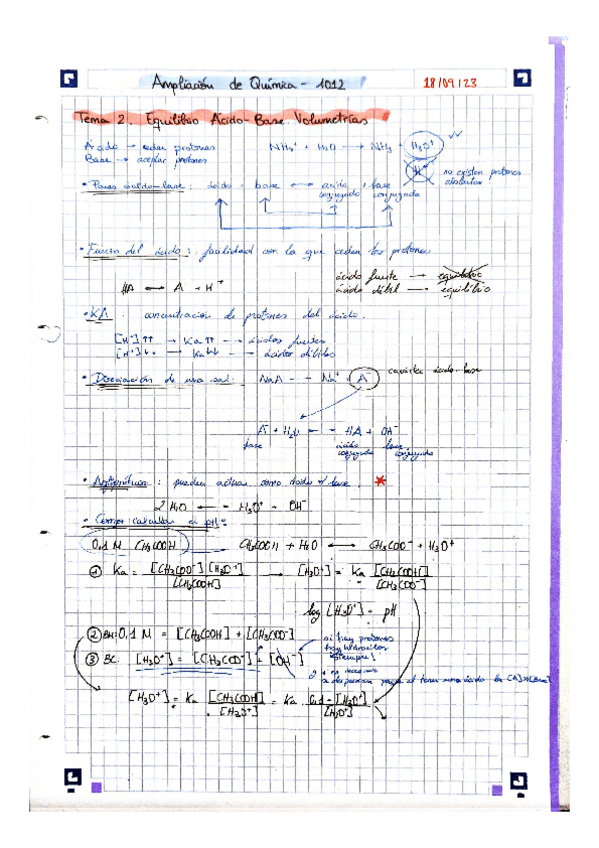 Ampliación de Química - 1012
18/09/23
Tema 2. Equilibrio Ácido-Base. Volumetrías
Ácido → ceder protones
Base → aceptar protones
NH₄⁺ + H₂O → NH₃ + H₃O⁺
H⁺ no existen protones
· Pares ácido-base: ácido + base ↔ ácido conjugado + base conjugada
· Fuerza del ácido: facilidad con la que ceden los protones
HA ↔ A⁻ + H⁺
ácido fuerte → equilibrio
ácido débil → equilibrio
· KA: concentración de protones del ácido.
[H⁺]↑↑ → Ka↑↑ → ácidos fuertes
[H⁺]↓↓ → Ka↓↓ → ácidos débiles
· Disociación de una sal: NaA → Na⁺ + A⁻ carácter ácido-base
A⁻ + H₂O ↔ HA + OH⁻
base ácido conjugado base conjugada
· Anfóteros: pueden actuar como ácido y base. *
2 H₂O ↔ H₃O⁺ + OH⁻
· Como calcular el pH:
0,1 M CH₃COOH
CH₃COOH + H₂O ↔ CH₃COO⁻ + H₃O⁺
① Ka = [CH₃COO⁻][H₃O⁺] / [CH₃COOH] → [H₃O⁺] = Ka [CH₃COOH] / [CH₃COO⁻]
log [H₃O⁺] = pH
② BM: 0,1 M = [CH₃COOH] + [CH₃COO⁻]
③ BC: [H₃O⁺] = [CH₃COO⁻] + [OH⁻]
si hay protones
hay hidroxilos
¡siempre!
[H₃O⁺] = Ka [CH₃COOH] / [H₃O⁺] = Ka 0,1 - [H₃O⁺] / [H₃O⁺]